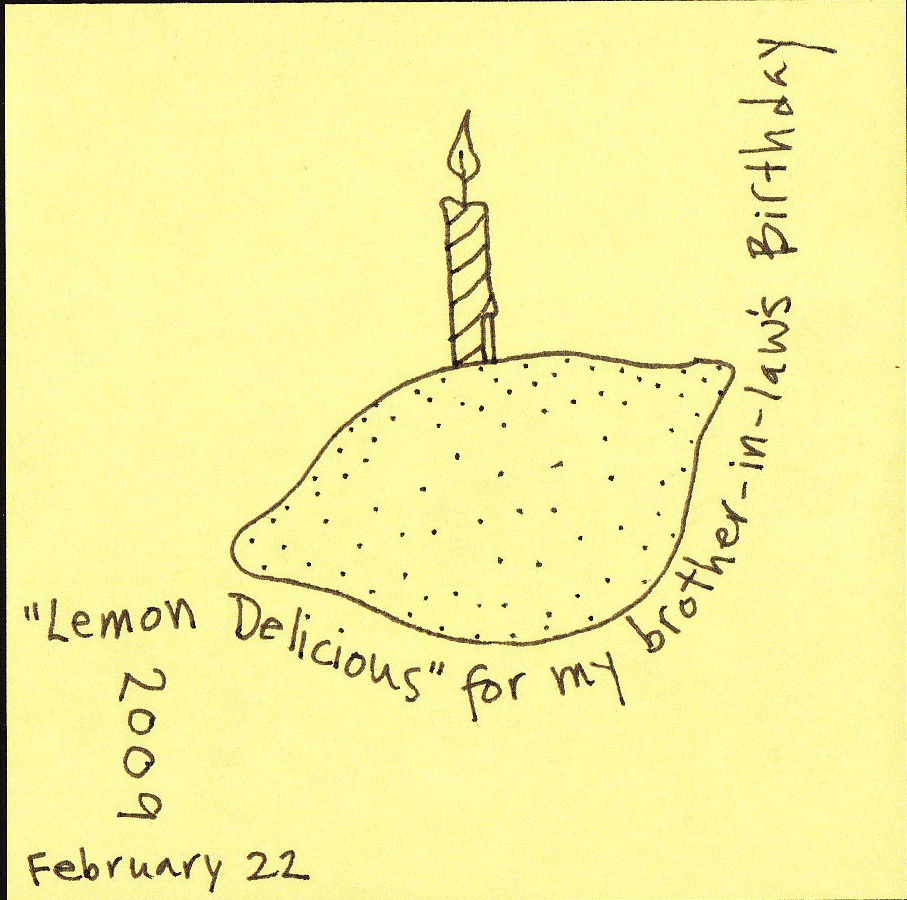 "Lemon Delicious" for my brother-in-law's Birthday
2009
February 22